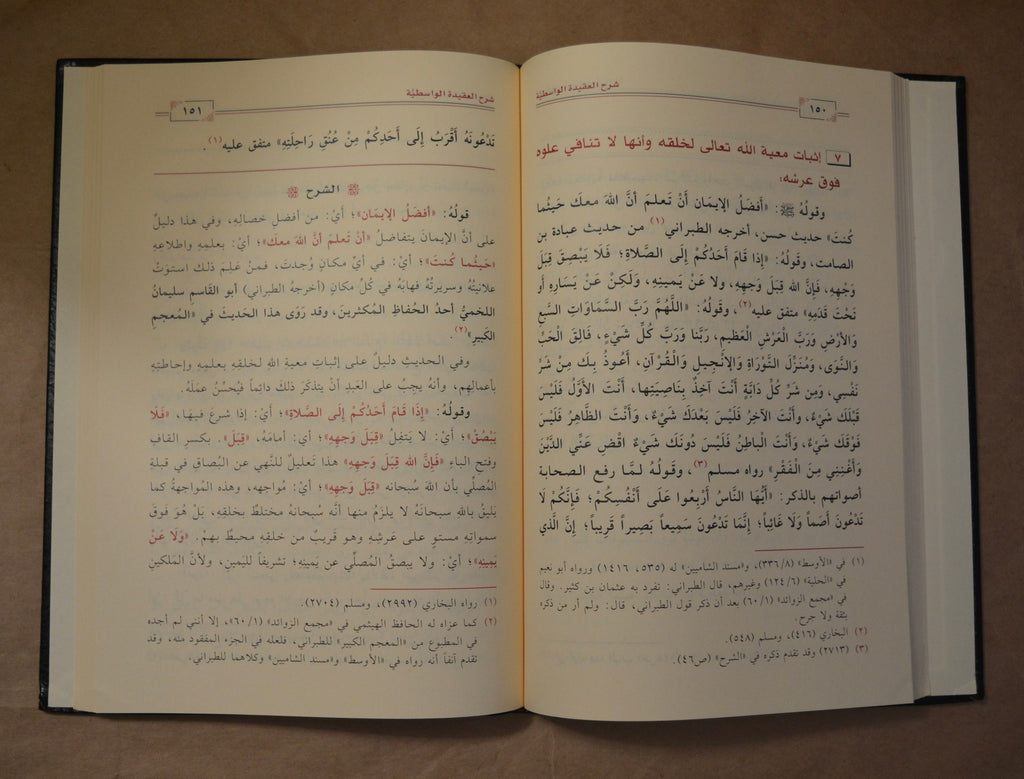 شرح العقيدة الواسطيّة
١٥٠
٧ إثبات معية الله تعالى لخلقه وأنها لا تنافي علوه
فوق عرشه:
وقولُهُ ﷺ: «أَفضَلُ الإِيمَان أَنْ تَعلمَ أَنَّ اللهَ معكَ حَيثُما
كُنتَ» حديث حسن، أخرجه الطبراني (١) من حديث عبادة بن
الصامت، وقَولُهُ: «إِذا قَامَ أَحَدُكُمْ إلَى الصَّلاةِ؛ فَلَا يَبْصِقَنَّ قِبَلَ
وَجْهِهِ، فَإِنَّ اللهَ قِبَلَ وَجهِهِ، ولا عَنْ يَمينِهِ، وَلَكِنْ عَنْ يَسَارِهِ أَو
تَحْتَ قَدَمِهِ» متفق عليه(٢)، وقَولُهُ: «اللَّهُمَّ رَبَّ السَّمَاوَاتِ السَّبعِ
وَالأَرْضِ وَرَبَّ الْعَرْشِ الْعَظيمِ، رَبَّنا وَرَبَّ كُلِّ شَيْءٍ، فَالِقَ الْحَبِّ
وَالنَّوَى، وَمُنَزِّلَ التَّوْرَاةِ وَالإِنْجيلِ وَالْقُرْآنِ، أَعُوذُ بِكَ مِنْ شَرِّ
نَفْسِي، وَمِن شَرِّ كُلِّ دَابَّةٍ أَنْتَ آخِذٌ بِنَاصِيَتِها، أَنْتَ الأَوَّلُ فَلَيْسَ
قَبْلَكَ شَيْءٌ، وأَنْتَ الآخِرُ فَلَيْسَ بَعْدَكَ شَيْءٌ، وَأَنْتَ الظَّاهِرُ فَلَيْسَ
فَوْقَكَ شَيْءٌ، وَأَنْتَ الْبَاطِنُ فَلَيْسَ دُونَكَ شَيْءٌ اقْضِ عَنِّي الدَّيْنَ
وَأَغْنِنِي مِنَ الْفَقْرِ» رواه مسلم(٣)، وقَولُهُ لمَّا رفع الصحابة
أصواتهم بالذكر: «أَيُّهَا النَّاسُ أَرْبِعُوا عَلَى أَنْفُسِكُمْ؛ فَإِنَّكُمْ لَا
تَدْعُونَ أَصَمّاً وَلَا غَائِباً؛ إِنَّمَا تَدْعُونَ سَمِيعاً بَصِيراً قَرِيباً؛ إِنَّ الَّذِي
(١) في «الأوسط» (٣٣٦/٨)، و«مسند الشاميين» له (٥٣٥، ١٤١٦) ورواه أبو نعيم
في «الحلية» (١٢٤/٦) وغيرهم، قال الطبراني: تفرد به عثمان بن كثير. وقال
في «مجمع الزوائد» (٦٠/١) بعد أن ذكر قول الطبراني، قال: ولم أر من ذكره
بثقة ولا جرح.
(٢) البخاري (٤١٦)، ومسلم (٥٤٨).
(٣) (٢٧١٣) وقد تقدم ذكره في «الشرح» (ص٤٦).
شرح العقيدة الواسطيّة
١٥١
تَدْعُونَهُ أَقْرَبُ إِلَى أَحَدِكُمْ مِنْ عُنُقِ رَاحِلَتِهِ» متفق عليه(١).
الشرح
قولُهُ: «أَفضَلُ الإِيمَان»؛ أيْ: من أفضلِ خصالِهِ، وفي هذا دليلٌ
على أنَّ الإيمانَ يتفاضلُ «أنْ تَعلمَ أنَّ اللهَ معكَ»؛ أيْ: بعلمِهِ واطلاعِهِ
«حَيثُما كُنتَ»؛ أيْ: في أيِّ مكانٍ وُجدتَ، فمَنْ عَلِمَ ذَلكَ استوتْ
علانيتُهُ وسريرتُهُ فهابَهُ في كُلِّ مكانٍ (أخرجهُ الطبراني) أبو القَاسمِ سليمانُ
اللخميُّ أحدُ الحُفاظِ المُكثرينَ، وقد رَوَى هذا الحَديثَ في «المُعجمِ
الكَبيرِ»(٢).
وفي الحديثِ دليلٌ على إثباتِ معيةِ اللهِ لخلقِهِ بعلمِهِ وإحاطتِهِ
بأعمالِهم، وأنهُ يجبُ على العَبدِ أنْ يتذكرَ ذلكَ دائماً فيُحْسنُ عملَهُ.
وقولُهُ: «إِذَا قَامَ أَحَدُكُمْ إلَى الصَّلاةِ»؛ أيْ: إذا شرعَ فيها، «فَلَا
يَبْصُقْ»؛ أيْ: لا يَتفِلُ «قِبَلَ وَجهِهِ»؛ أي: أمامَهُ، «قِبَلَ». بكسرِ القافِ
وفتحِ الباءِ «فَإنَّ الله قِبَلَ وَجهِهِ» هذا تَعليلٌ للنَّهي عن البُصاقِ في قبلةِ
المُصلِّي بأن اللهَ سُبحانه «قِبَلَ وَجهِهِ»؛ أيْ: مُواجهه، وهذه المُواجهةُ كما
يَليقُ باللهِ سبحانَهُ لا يلزمُ منها أنَّه سُبحانهُ مختلطٌ بخلقِهِ، بَلْ هُوَ فوقَ
سمواتِهِ مستوٍ على عَرشِهِ وهو قريبٌ من خلقِهِ محيطٌ بهمْ. «وَلَا عَنْ
يَمينِهِ»؛ أيْ: ولا يبصقُ المُصلِّي عن يَمينِهِ؛ تشريفاً لليَمينِ، ولأنَّ المَلكينِ
(١) رواه البخاري (٢٩٩٢)، ومسلم (٢٧٠٤).
(٢) كما عزاه له الحافظ الهيثمي في «مجمع الزوائد» (٦٠/١)، إلا أنني لم أجده
في المطبوع من «المعجم الكبير» للطبراني، فلعله في الجزء المفقود منه، وقد
تقدم آنفاً أنه رواه في «الأوسط» و«مسند الشاميين» وكلاهما للطبراني.